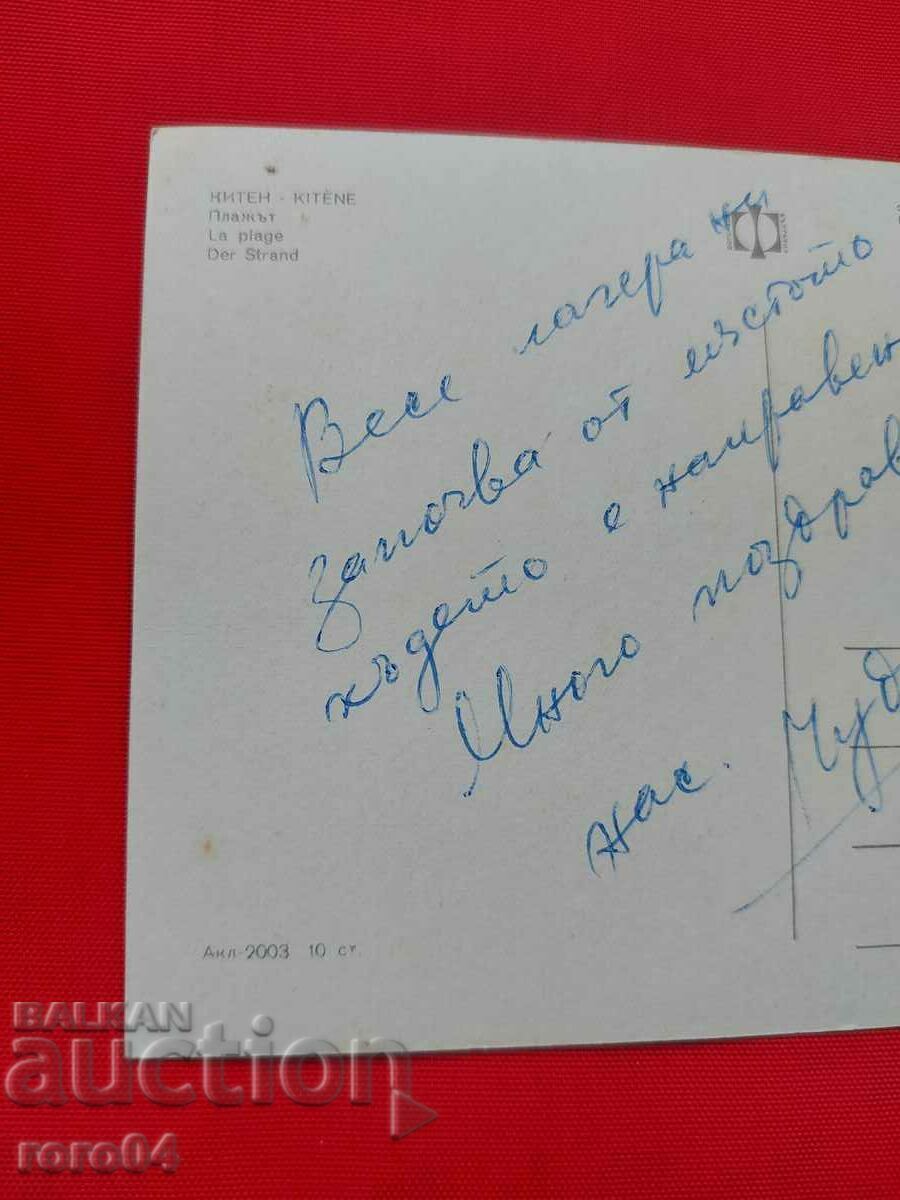 КИТЕН - KITÈNE
Плажът
La plage
Der Strand
Весе лагера ни
започва от мястото
където е направен
Много поздрав
нас. Чуд
Акл-2003 10 ст.
BALKAN
auction
roro04